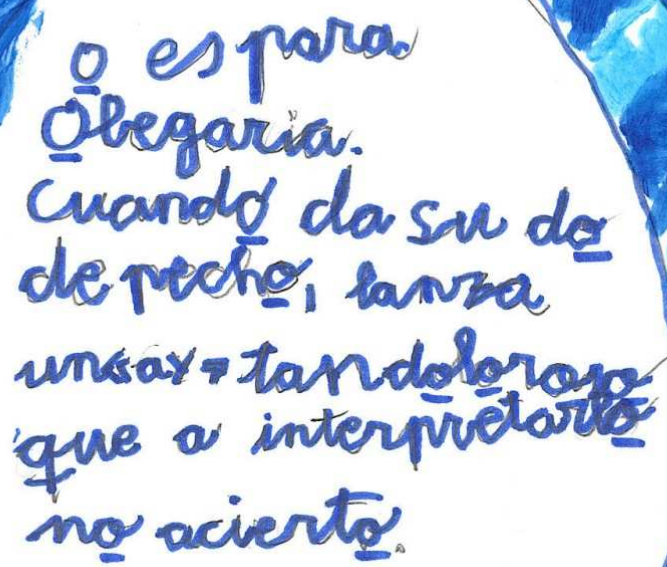 O es para
Obegaria.
Cuando da su do
de pecho, lanza
un «ay» tan doloroso
que a interpretarlo
no acierto.